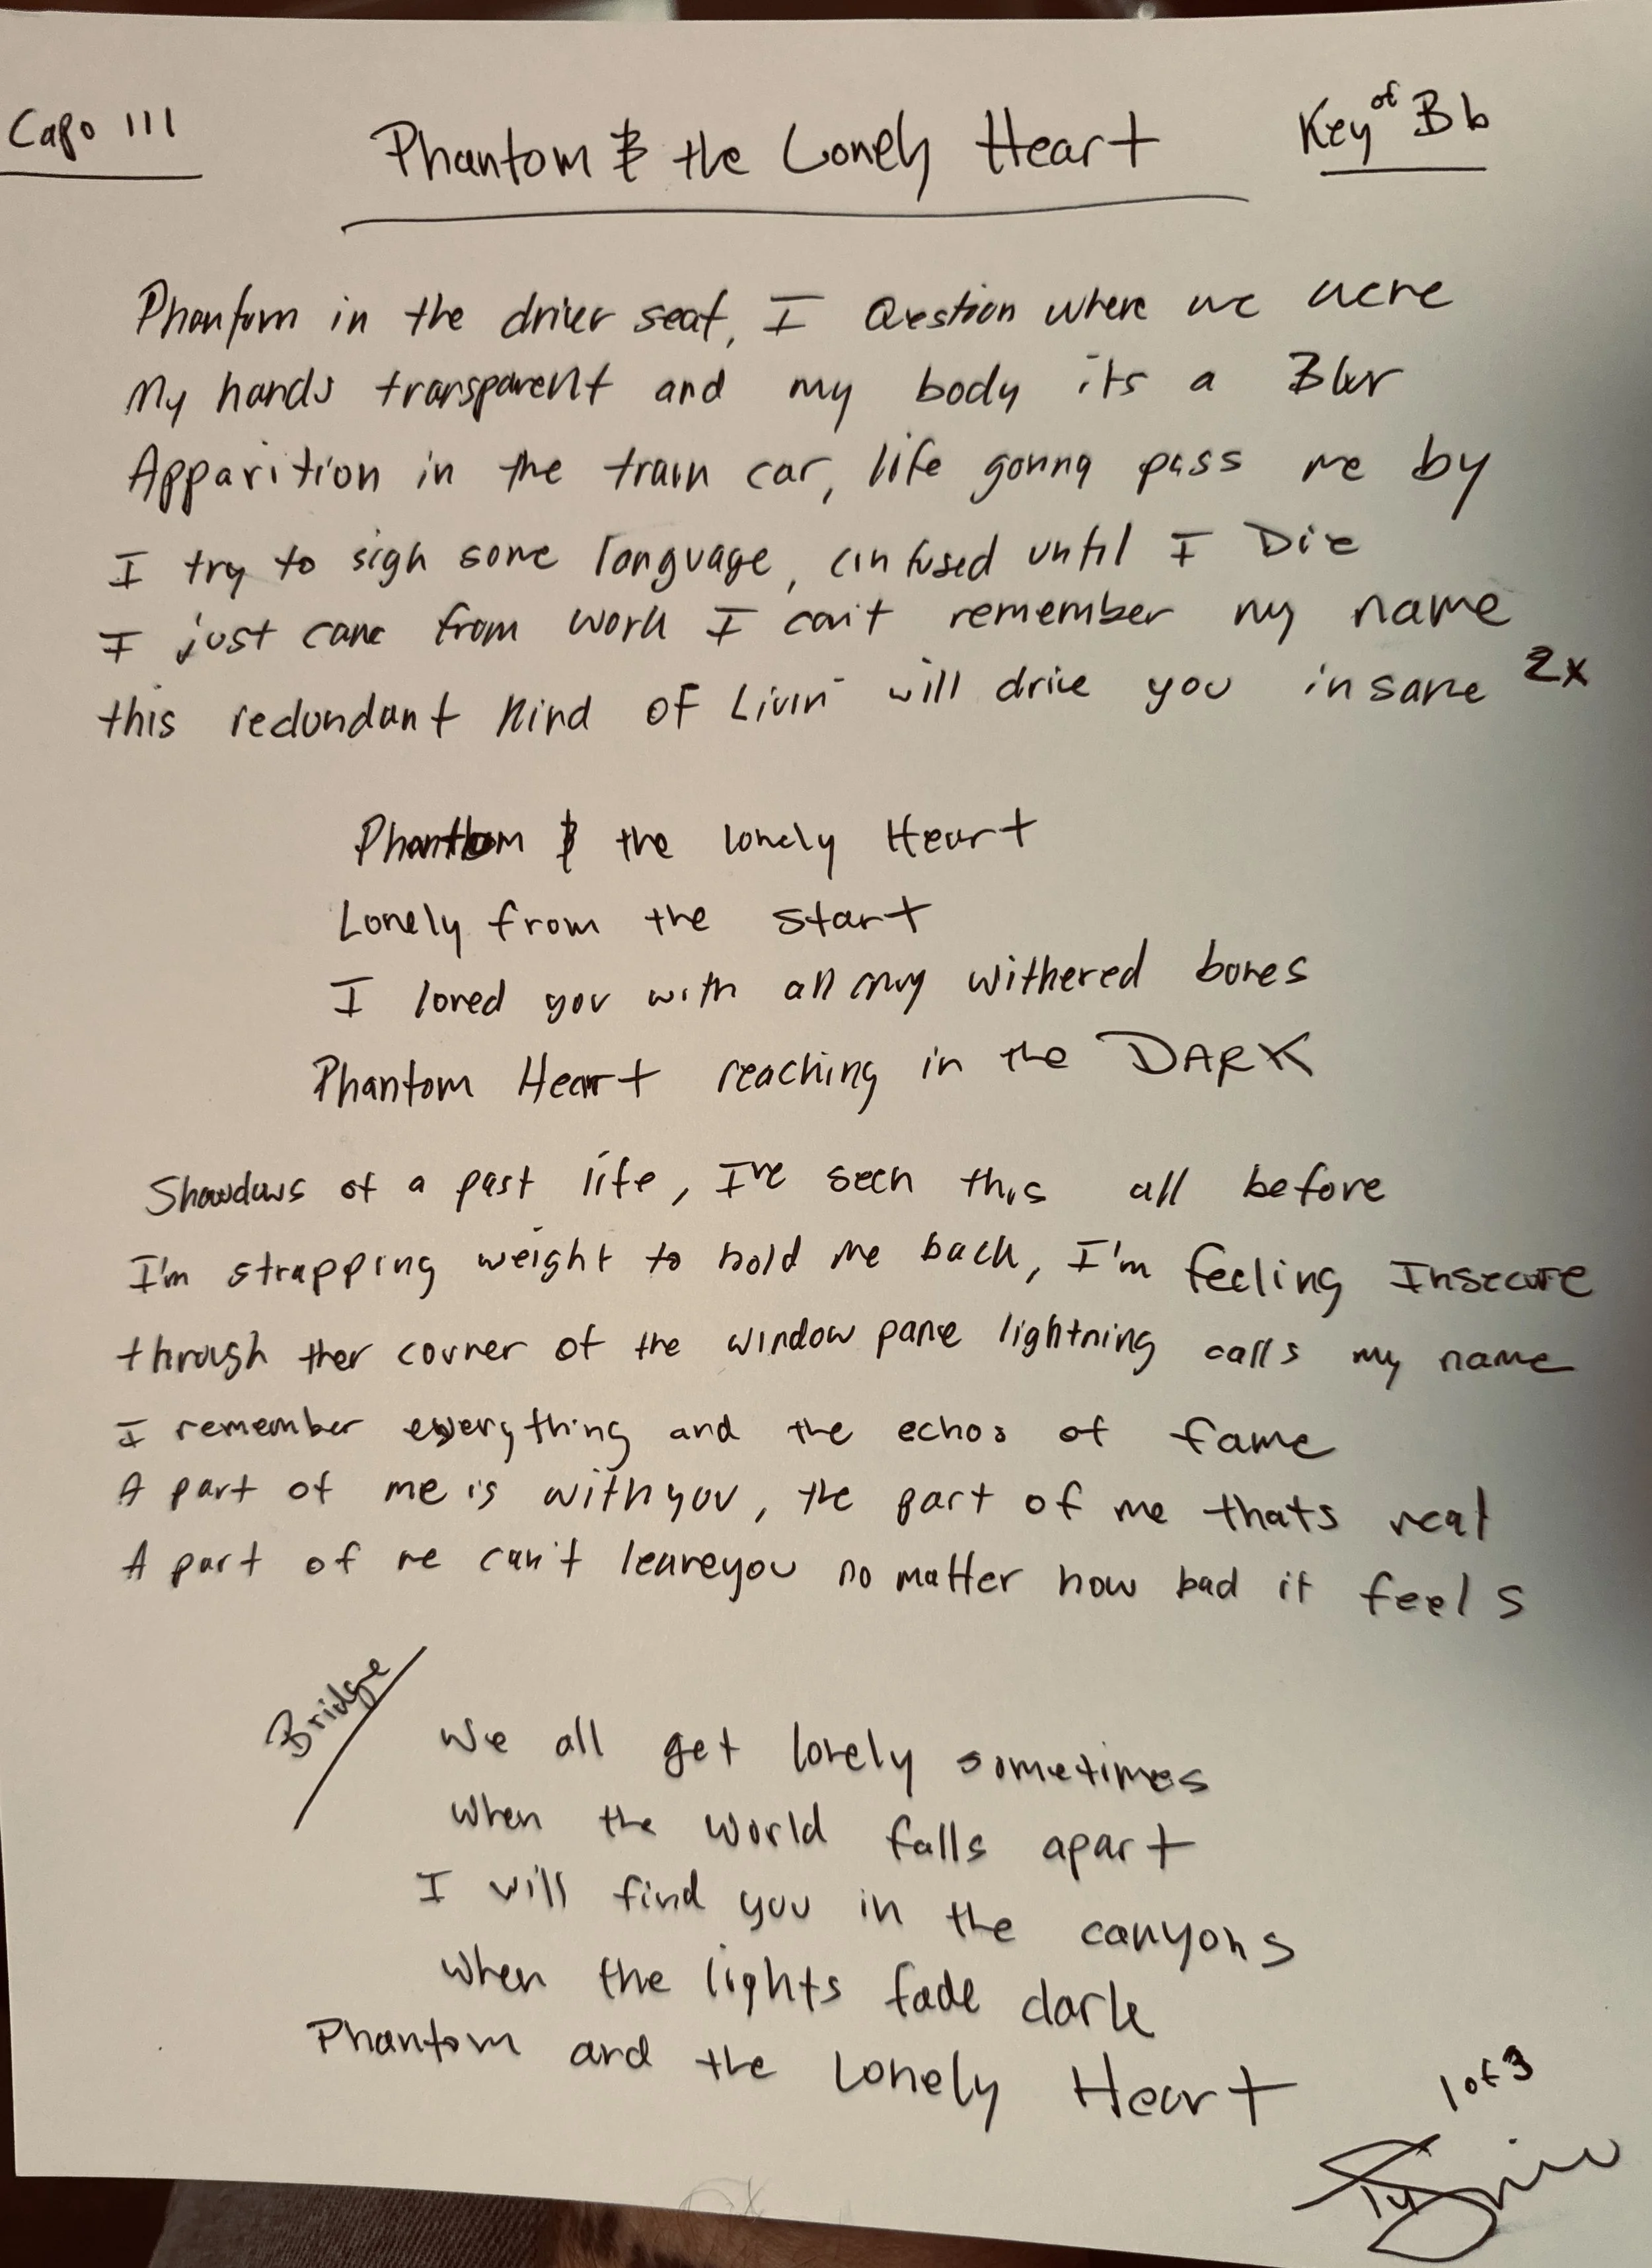 Capo III
Phantom & the Lonely Heart
Key of Bb
Phantom in the driver seat, I Question where we were
My hands transparent and my body its a Blur
Apparition in the train car, life gonna pass me by
I try to sigh some language, confused until I Die
I just came from work I can't remember my name
this redundant kind of Livin' will drive you insane 2x
Phantom & the lonely Heart
Lonely from the start
I loved you with all my withered bones
Phantom Heart reaching in the DARK
Shawdows of a past life, I've seen this all before
I'm strapping weight to hold me back, I'm feeling Insecure
through ther corner of the window pane lightning calls my name
I remember everything and the echos of fame
A part of me is with you, the part of me thats real
A part of me can't leave you no matter how bad it feels
Bridge
We all get lonely sometimes
when the world falls apart
I will find you in the canyons
when the lights fade dark
Phantom and the Lonely Heart
1 of 3